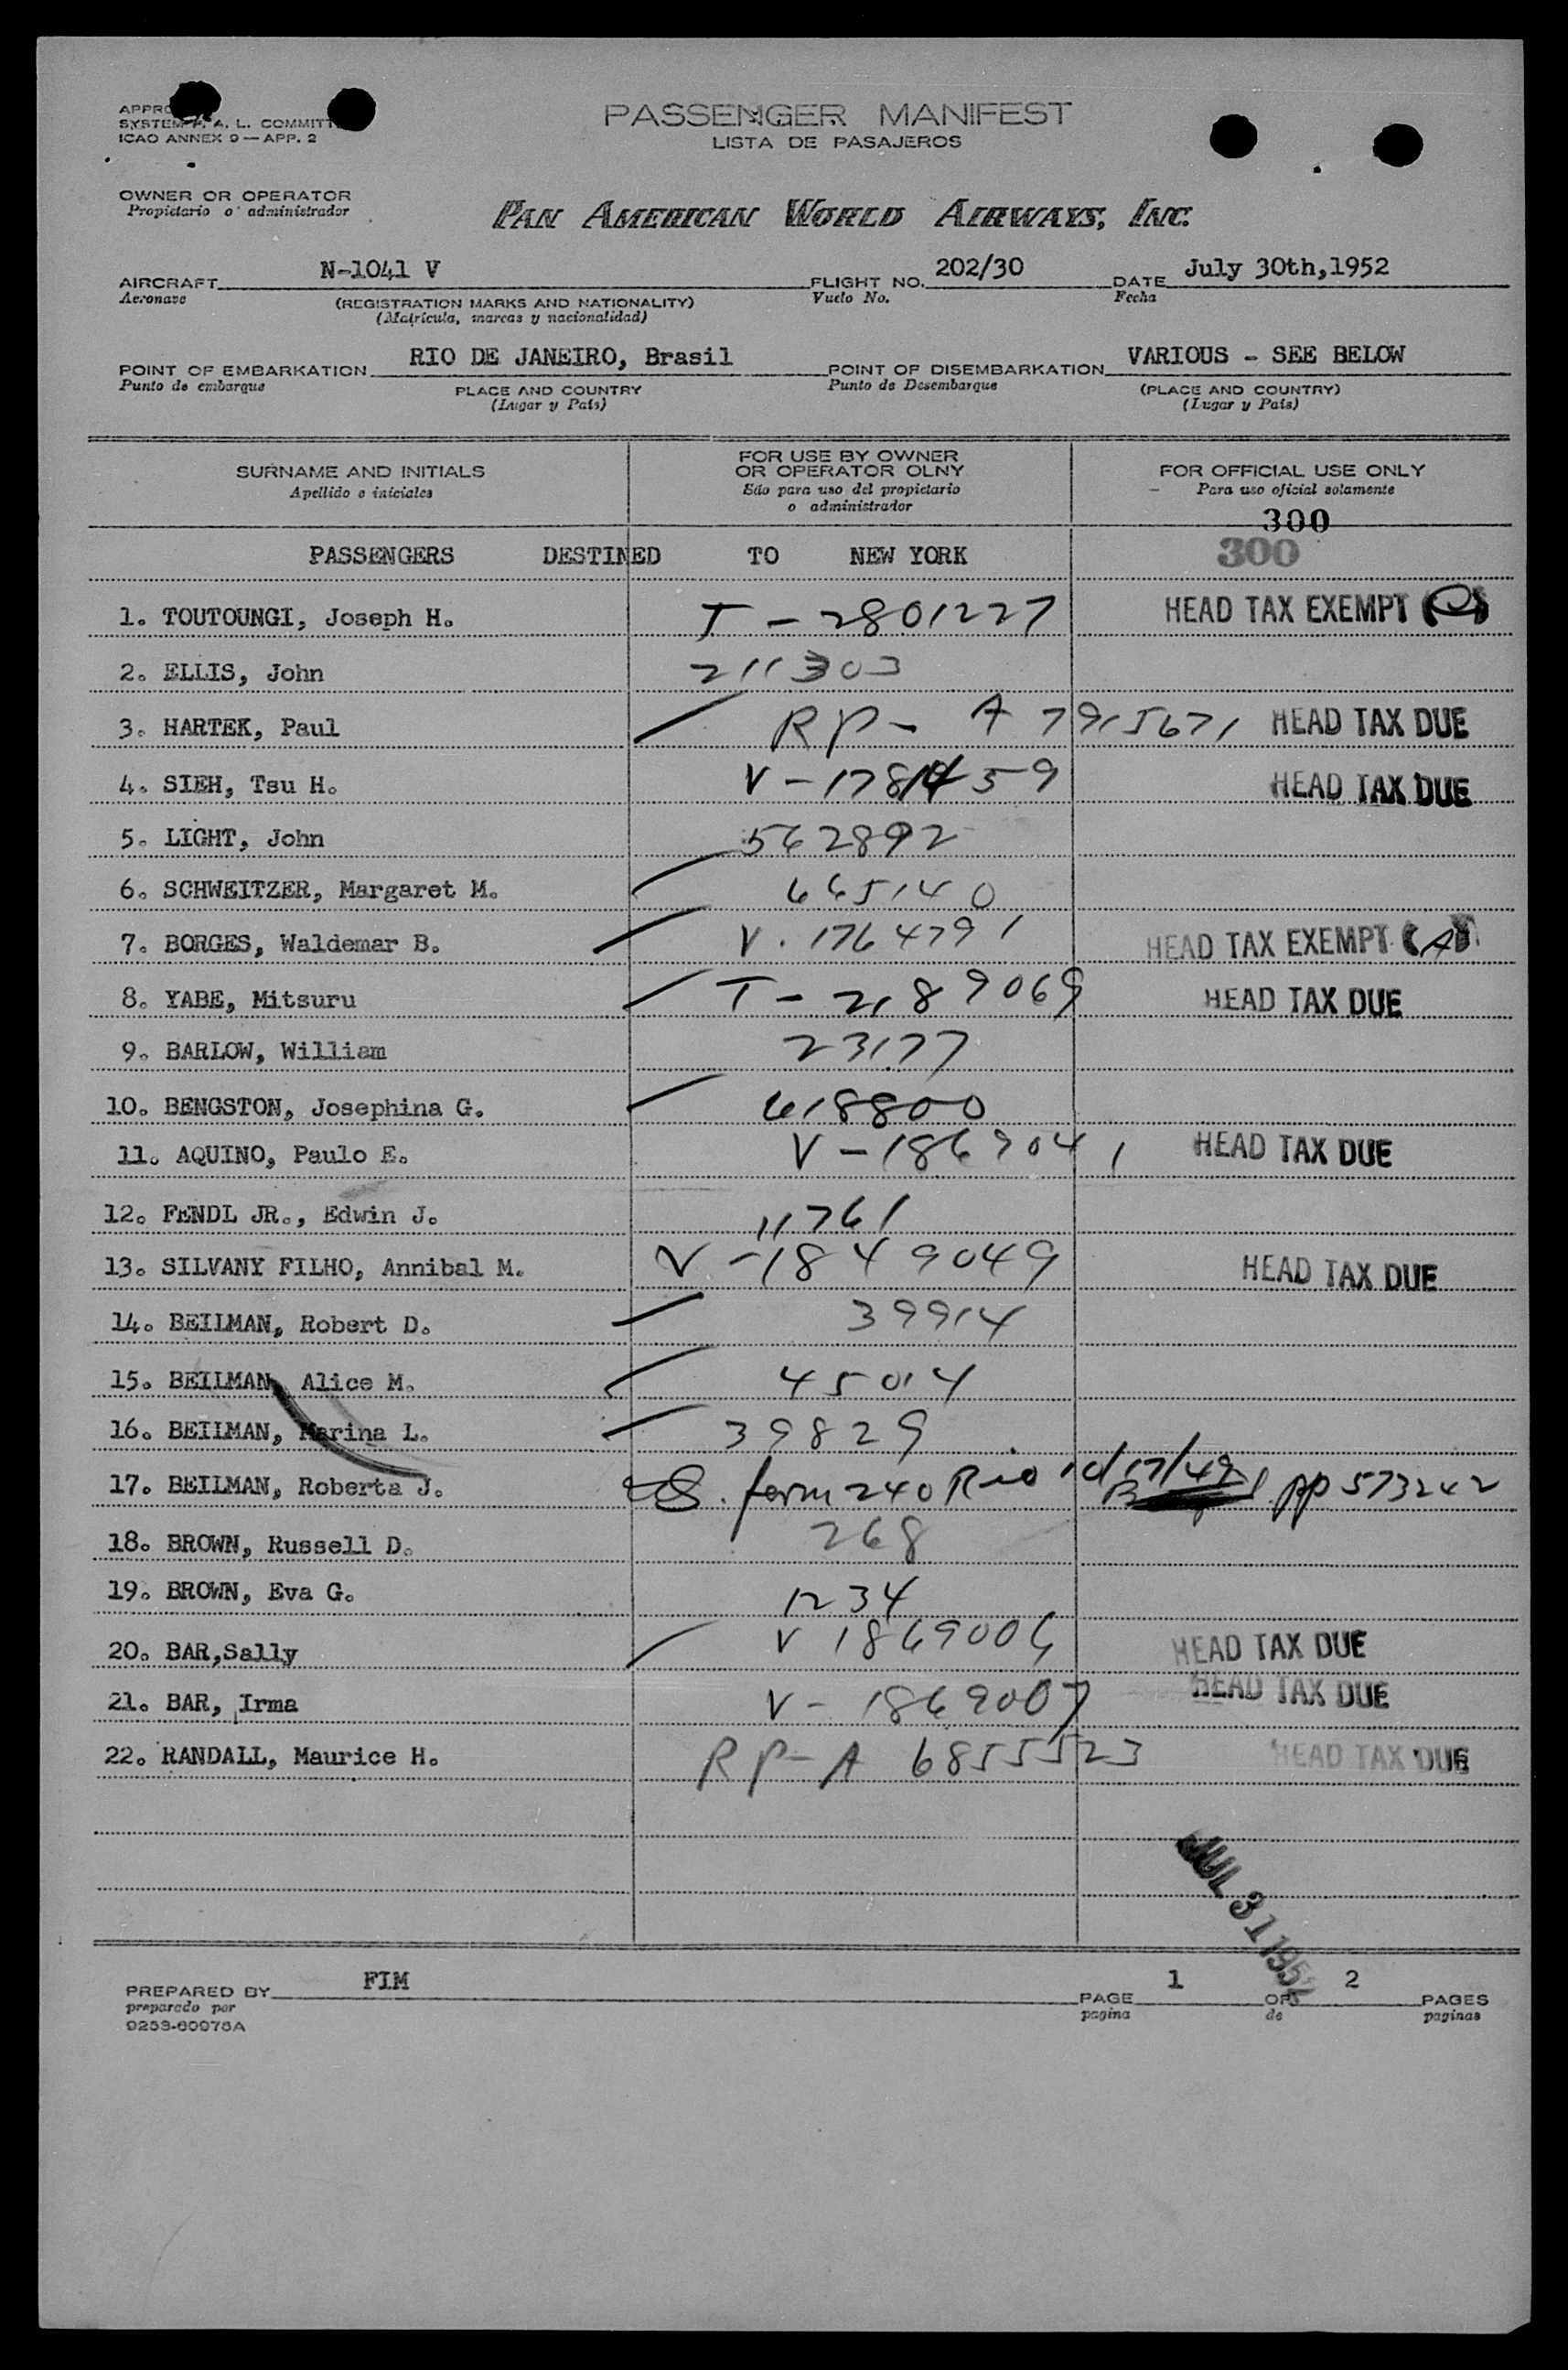 PASSENGER MANIFEST
LISTA DE PASAJEROS
SYSTEM P. A. L.
ICAO ANNEX 9 — APP. 2
OWNER OR OPERATOR
Propietario o administrador
PAN AMERICAN WORLD AIRWAYS, INC.
AIRCRAFT N-1041 V FLIGHT NO. 202/30 DATE July 30th,1952
Aeronave (REGISTRATION MARKS AND NATIONALITY) Vuelo No. Fecha
(Matrícula, marcas y nacionalidad)
POINT OF EMBARKATION RIO DE JANEIRO, Brasil POINT OF DISEMBARKATION VARIOUS - SEE BELOW
Punto de embarque PLACE AND COUNTRY Punto de Desembarque (PLACE AND COUNTRY)
(Lugar y País) (Lugar y País)
SURNAME AND INITIALS FOR USE BY OWNER OR OPERATOR OLNY FOR OFFICIAL USE ONLY
Apellido e iniciales Sólo para uso del propietario o administrador Para uso oficial solamente
300
PASSENGERS DESTINED TO NEW YORK 300
1. TOUTOUNGI, Joseph H. T - 2801227 HEAD TAX EXEMPT
2. ELLIS, John 211303
3. HARTEK, Paul RP- A 7915671 HEAD TAX DUE
4. SIEH, Tsu H. HEAD TAX DUE
5. LIGHT, John 562892
6. SCHWEITZER, Margaret M. 665140
7. BORGES, Waldemar B. V. 1764791 HEAD TAX EXEMPT (A)
8. YABE, Mitsuru T - 2189069 HEAD TAX DUE
9. BARLOW, William 23177
10. BENGSTON, Josephina G. 618800
11. AQUINO, Paulo E. V - 1869041 HEAD TAX DUE
12. FENDL JR., Edwin J. 11761
13. SILVANY FILHO, Annibal M. V - 1849049 HEAD TAX DUE
14. BEILMAN, Robert D. 39914
15. BEILMAN, Alice M. 45014
16. BEILMAN, Marina L. 39829
17. BEILMAN, Roberta J. form 240 Rio 10/17/49 pp 573242
18. BROWN, Russell D. 268
19. BROWN, Eva G. 1234
20. BAR,Sally V 1869006 HEAD TAX DUE
21. BAR, Irma V - 1869007 HEAD TAX DUE
22. RANDALL, Maurice H. RP- A 6855523 HEAD TAX DUE
JUL 31 1952
PREPARED BY FIM PAGE 1 OF 2 PAGES
preparado por pagina de paginas
9253-60975A